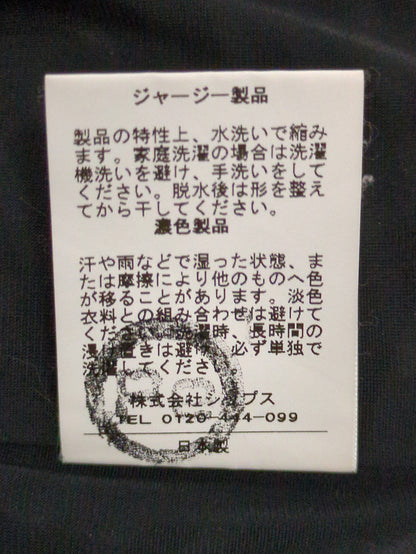 ジャージー製品
製品の特性上、水洗いで縮み
ます。家庭洗濯の場合は洗濯
機洗いを避け、手洗いをして
ください。脱水後は形を整え
てから干してください。
濃色製品
汗や雨などで湿った状態、ま
たは摩擦により他のものへ色
が移ることがあります。淡色
衣料との組み合わせは避けて
ください。洗濯時、長時間の
浸け置きは避け、必ず単独で
洗濯してください
株式会社シップス
TEL 0120-444-099
日本製